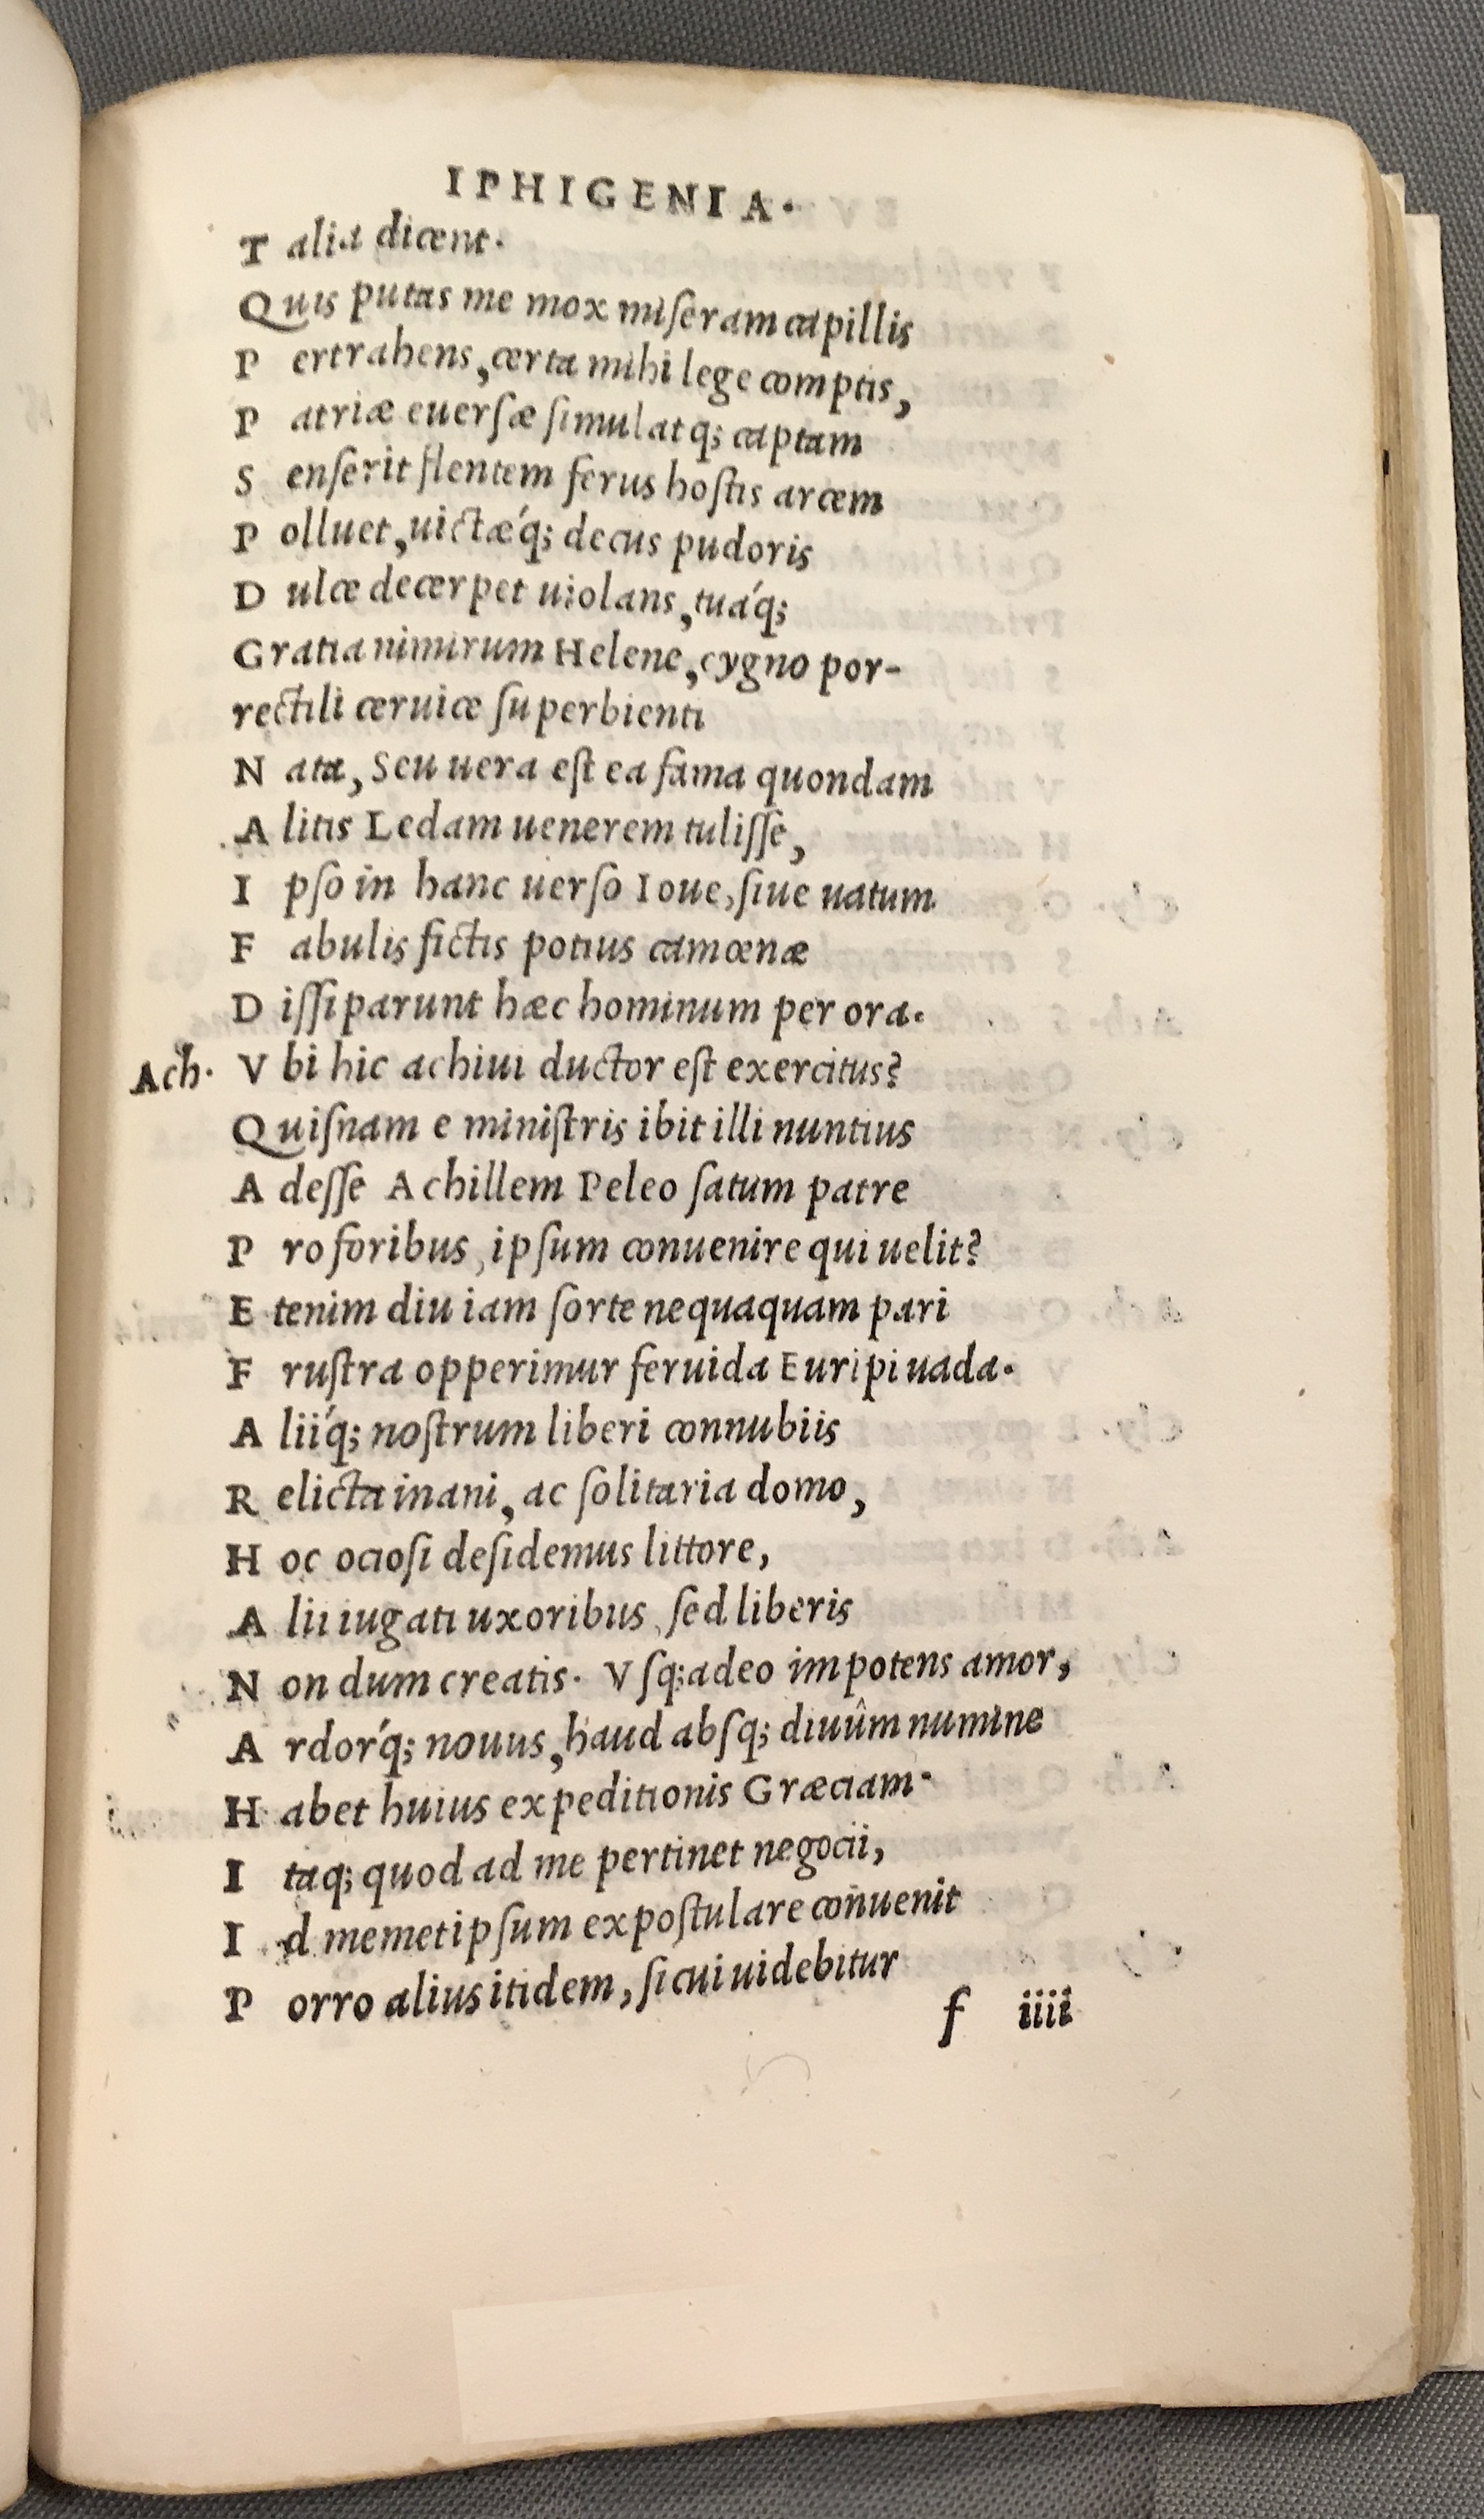 IPHIGENIA.
T alia dicent.
Quis putas me mox miſeram capillis
P ertrahens, certa mihi lege comptis,
P atriæ euerſæ ſimulatq; captam
S enſerit flentem ferus hoſtis arcem
P olluet, uictæ´q; decus pudoris
D ulce decerpet uiolans, tuáq;
Gratia nimirum Helene, cygno por-
rectili ceruice ſuperbienti
N ata, Seu uera eſt ea fama quondam
A litis Ledam uenerem tuliſſe,
I pſo in hanc uerſo Ioue, ſiue uatum
F abulis fictis potius camœnæ
D iſſiparunt hæc hominum per ora.
Ach. V bi hic achiui ductor eſt exercitus?
Quiſnam e miniſtris ibit illi nuntius
A deſſe Achillem Peleo ſatum patre
P ro foribus, ipſum conuenire qui uelit?
E tenim diu iam ſorte nequaquam pari
F ruſtra opperimur feruida Euripi uada.
A liíq; noſtrum liberi connubiis
R elicta inani, ac ſolitaria domo,
H oc ocioſi deſidemus littore,
A lii iugati uxoribus, ſed liberis
N on dum creatis. Vſq; adeo impotens amor,
A rdor´q; nouus, haud abſq; diuûm numine
H abet huius expeditionis Græciam.
I taq; quod ad me pertinet negocii,
I d memet ipſum expoſtulare conuenit
P orro alius itidem, ſi cui uidebitur
f iiii